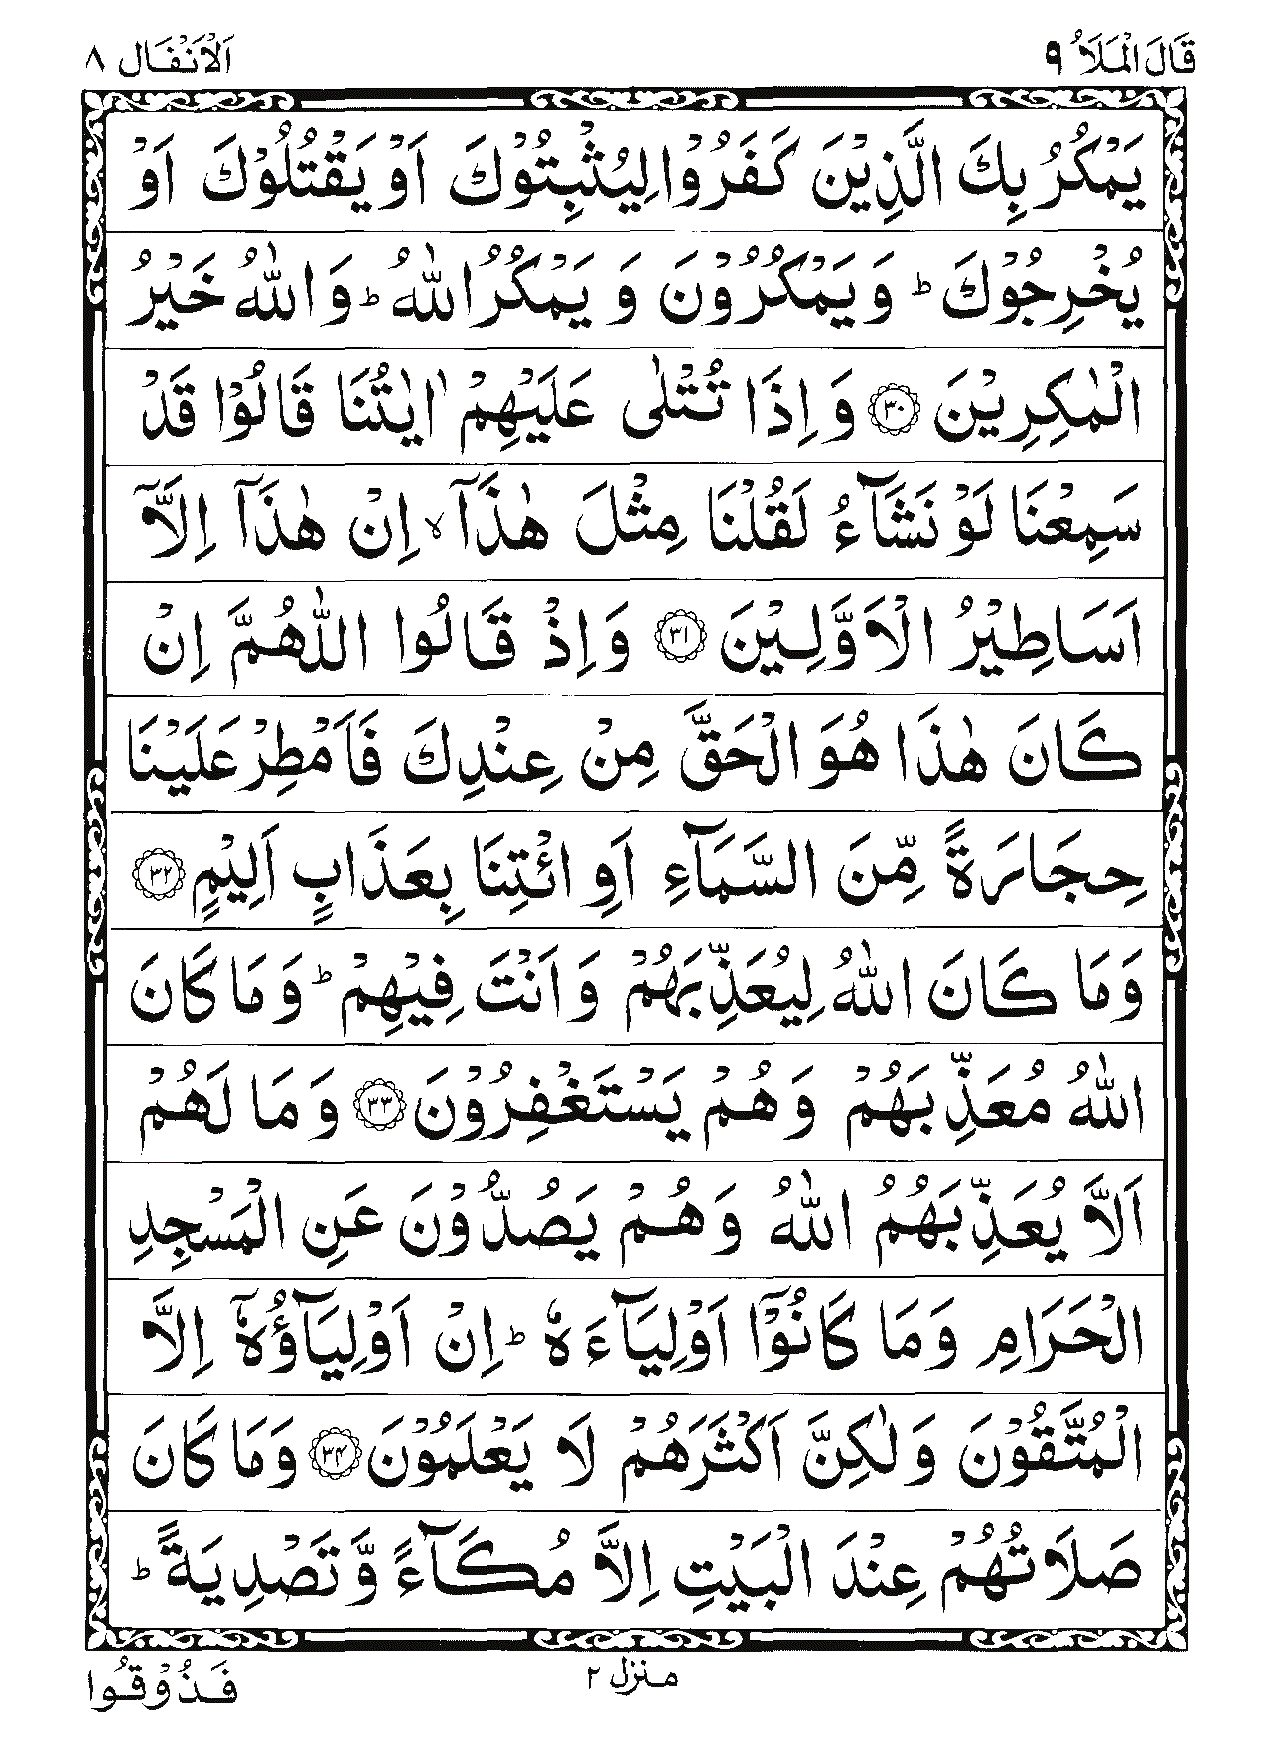 قَالَ الْمَلَاُ ٩
اَلْاَنْفَال ٨
يَمْكُرُ بِكَ الَّذِيْنَ كَفَرُوْا لِيُثْبِتُوْكَ اَوْ يَقْتُلُوْكَ اَوْ
يُخْرِجُوْكَ ؕ وَ يَمْكُرُوْنَ وَ يَمْكُرُ اللّٰهُ ؕ وَ اللّٰهُ خَيْرُ
الْمٰكِرِيْنَ ۝٣٠ وَ اِذَا تُتْلٰى عَلَيْهِمْ اٰيٰتُنَا قَالُوْا قَدْ
سَمِعْنَا لَوْ نَشَآءُ لَقُلْنَا مِثْلَ هٰذَاۤ ۙ اِنْ هٰذَاۤ اِلَّاۤ
اَسَاطِيْرُ الْاَوَّلِيْنَ ۝٣١ وَ اِذْ قَالُوا اللّٰهُمَّ اِنْ
كَانَ هٰذَا هُوَ الْحَقَّ مِنْ عِنْدِكَ فَاَمْطِرْ عَلَيْنَا
حِجَارَةً مِّنَ السَّمَآءِ اَوِ ائْتِنَا بِعَذَابٍ اَلِيْمٍ ۝٣٢
وَمَا كَانَ اللّٰهُ لِيُعَذِّبَهُمْ وَ اَنْتَ فِيْهِمْ ؕ وَمَا كَانَ
اللّٰهُ مُعَذِّبَهُمْ وَ هُمْ يَسْتَغْفِرُوْنَ ۝٣٣ وَ مَا لَهُمْ
اَلَّا يُعَذِّبَهُمُ اللّٰهُ وَ هُمْ يَصُدُّوْنَ عَنِ الْمَسْجِدِ
الْحَرَامِ وَمَا كَانُوْۤا اَوْلِيَآءَهٗ ؕ اِنْ اَوْلِيَآؤُهٗۤ اِلَّا
الْمُتَّقُوْنَ وَ لٰكِنَّ اَكْثَرَهُمْ لَا يَعْلَمُوْنَ ۝٣٤ وَمَا كَانَ
صَلَاتُهُمْ عِنْدَ الْبَيْتِ اِلَّا مُكَآءً وَّ تَصْدِيَةً ؕ
منزل ٢
فَذُوْقُوا